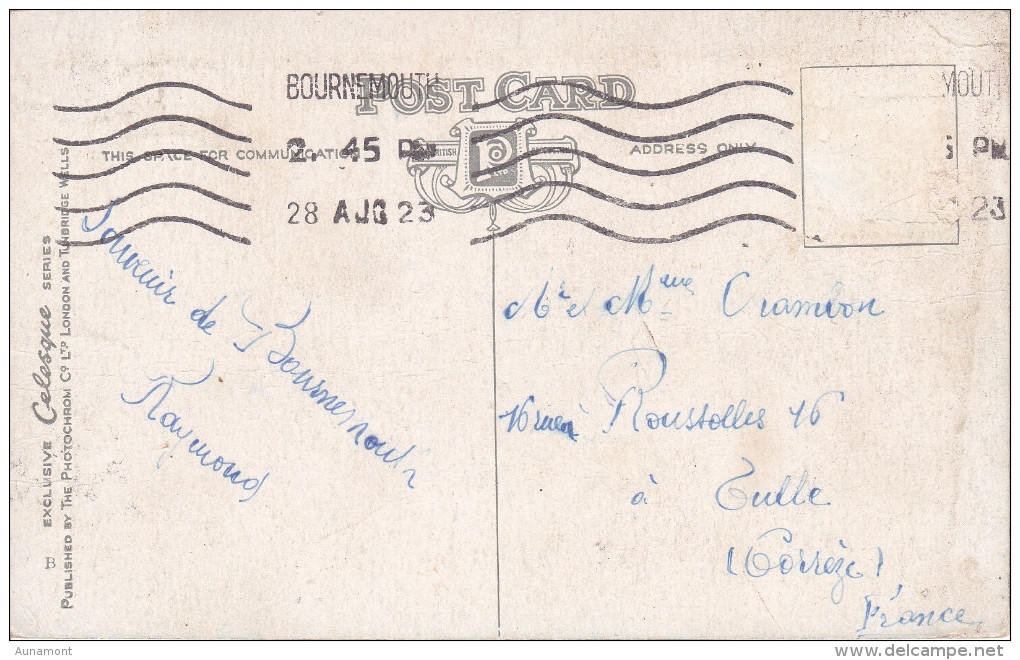 BOURNEMOUTH
POST CARD
2 45 PM
28 AUG 23
MOUTH
5 PM
23
THIS SPACE FOR COMMUNICATION
BRITISH
ADDRESS ONLY
EXCLUSIVE Celesque SERIES
PUBLISHED BY THE PHOTOCHROM CO. LTD. LONDON AND TUNBRIDGE WELLS
B
Souvenir de Bournemouth
Raymond
Mr et Mme Crambon
16 rue Roussolles 16
à Tulle
(Corrèze)
France
Aunamont
delcampe.net